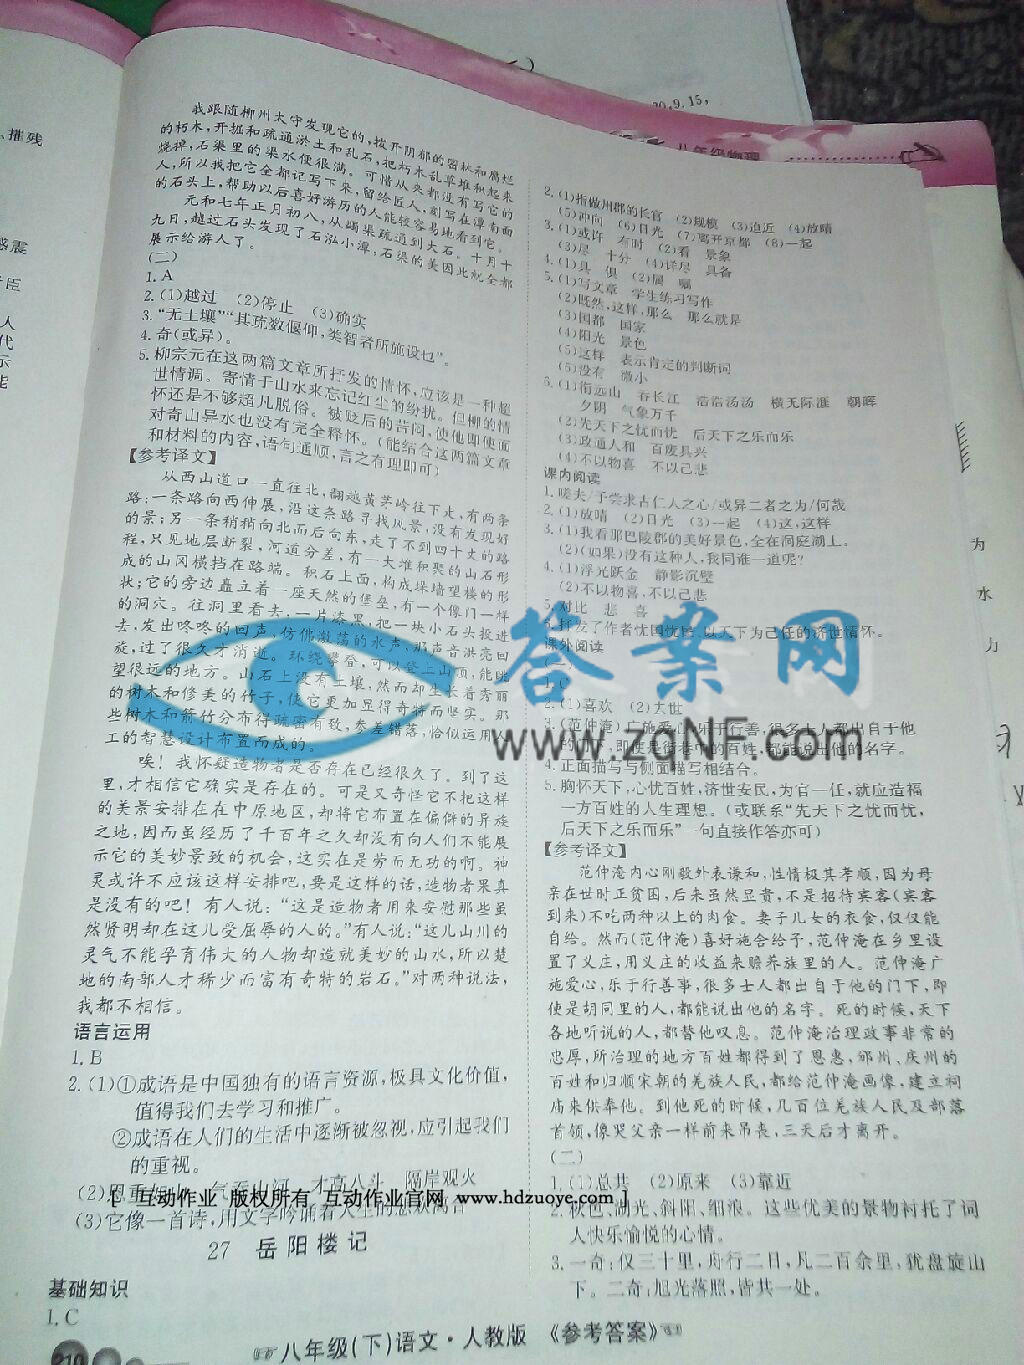 摧残
感震
我跟随柳州太守发现它的,拨开阴郁的密林和腐烂
的朽木,开掘和疏通淤土和乱石,把朽木乱草堆积起来
烧掉,石渠里的渠水便很满。可惜从来都没有写它的
人,所以我把它全都记写下来,留给匠人,刻写在潭南面
的石头上,帮助以后喜好游历的人能较容易地看到它。
元和七年正月初八,从崤渠疏通到大石。十月十
九日,越过石头发现了石泓小潭,石渠的美因此就全都
展示给游人了。
(二)
1. A
2. (1)越过 (2)停止 (3)确实
3. “无土壤”“其疏数偃仰,类智者所施设也”。
4. 奇(或异)。
5. 柳宗元在这两篇文章所抒发的情怀,应该是一种超
世情调。寄情于山水来忘记红尘的纷扰。但柳的情
怀还是不够超凡脱俗。被贬后的苦闷,使他即使面
对奇山异水也没有完全释怀。(能结合这两篇文章
和材料的内容,语句通顺,言之有理即可)
【参考译文】
从西山道口一直往北,翻越黄茅岭往下走,有两条
路:一条路向西伸展,沿这条路寻找风景,没有发现好
的景;另一条稍稍向北而后向东,走了不到四十丈的路
程,只见地层断裂,河道分差,有一大堆积聚的山石形
成的山冈横挡在路端。积石上面,构成垛墙望楼的形
状;它的旁边矗立着一座天然的堡垒,有一个像门一样
的洞穴。往洞里看去,一片漆黑,把一块小石头投进
去,发出咚咚的回声,仿佛激荡的水声,那声音洪亮回
旋,过了很久才消逝。环绕攀登,可以登上山顶,能眺
望很远的地方。山石上没有土壤,然而却生长着秀丽
的树木和修美的竹子,使它更加显得奇特而坚实。那
些树木和箭竹分布得疏密有致,参差错落,恰似运用人
工的智慧设计布置而成的。
唉!我怀疑造物者是否存在已经很久了。到了这
里,才相信它确实是存在的。可是又奇怪它不把这样
的美景安排在在中原地区,却将它布置在偏僻的异族
之地,因而虽经历了千百年之久却没有向人们不能展
示它的美妙景致的机会,这实在是劳而无功的啊。神
灵或许不应该这样安排吧,要是这样的话,造物者果真
是没有的吧!有人说:“这是造物者用来安慰那些虽
然贤明却在这儿受屈辱的人的。”有人说:“这儿山川的
灵气不能孕育伟大的人物却造就美妙的山水,所以楚
地的南部人才稀少而富有奇特的岩石。”对两种说法,
我都不相信。
语言运用
1. B
2. (1)①成语是中国独有的语言资源,极具文化价值,
值得我们去学习和推广。
②成语在人们的生活中逐渐被忽视,应引起我们
的重视。
(2)恩重如山 气吞山河 才高八斗 隔岸观火
(3)它像一首诗,用文字吟诵着人生的
27 岳阳楼记
基础知识
1. C
210
八年级物理
2. (1)指做州郡的长官 (2)规模 (3)迫近 (4)放晴
(5)冲向 (6)日光 (7)离开京都 (8)一起
3. (1)或许 有时 (2)看 景象
(3)尽 十分 (4)详尽 具备
4. (1)具 俱 (2)属 嘱
5. (1)写文章 学生练习写作
(2)既然,这样,那么 那么就是
(3)国都 国家
(4)阳光 景色
(5)这样 表示肯定的判断词
(5)没有 微小
(1)衔远山 吞长江 浩浩汤汤 横无际涯 朝晖
夕阴 气象万千
(2)先天下之忧而忧 后天下之乐而乐
(3)政通人和 百废具兴
(4)不以物喜 不以己悲
课内阅读
1. 嗟夫/予尝求古仁人之心/或异二者之为/何哉
2. (1)放晴 (2)日光 (3)一起 (4)这,这样
3. (1)我看那巴陵郡的美好景色,全在洞庭湖上。
(2)(如果)没有这种人,我同谁一道呢?
4. (1)浮光跃金 静影沉璧
(2)不以物喜,不以己悲
5. 对比 悲 喜
抒发了作者忧国忧民,以天下为己任的济世情怀。
课外阅读
2. (1)喜欢 (2)去世
3. (范仲淹)广施爱心,乐于行善,很多士人都出自于他
的门下,即使是街巷中的百姓,都能说出他的名字。
4. 正面描写与侧面描写相结合。
5. 胸怀天下,心忧百姓,济世安民,为官一任,就应造福
一方百姓的人生理想。(或联系“先天下之忧而忧,
后天下之乐而乐”一句直接作答亦可)
【参考译文】
范仲淹内心刚毅外表谦和,性情极其孝顺,因为母
亲在世时正贫困,后来虽然显贵,不是招待宾客(宾客
到来)不吃两种以上的肉食。妻子儿女的衣食,仅仅能
自给。然而(范仲淹)喜好施舍给予,范仲淹在乡里设
置了义庄,用义庄的收益来赡养族里的人。范仲淹广
施爱心,乐于行善事,很多士人都出自于他的门下,即
使是胡同里的人,都能说出他的名字。死的时候,天下
各地听说的人,都替他叹息。范仲淹治理政事非常的
忠厚,所治理的地方百姓都得到了恩惠,邠州、庆州的
百姓和归顺宋朝的羌族人民,都给范仲淹画像,建立祠
庙来供奉他。到他死的时候,几百位羌族人民及部落
首领,像哭父亲一样前来吊丧,三天后才离开。
(二)
1. (1)总共 (2)原来 (3)靠近
2. 秋色、湖光、斜阳、细浪。这些优美的景物衬托了词
人快乐愉悦的心情。
3. 一奇:仅三十里,舟行二日,凡二百余里,犹盘旋山
下。二奇:旭光落照,皆共一处。
八年级(下)语文·人教版 《参考答案》
答案网
www.zqNF.com
[ 互动作业 版权所有 互动作业官网 www.hdzuoye.com ]